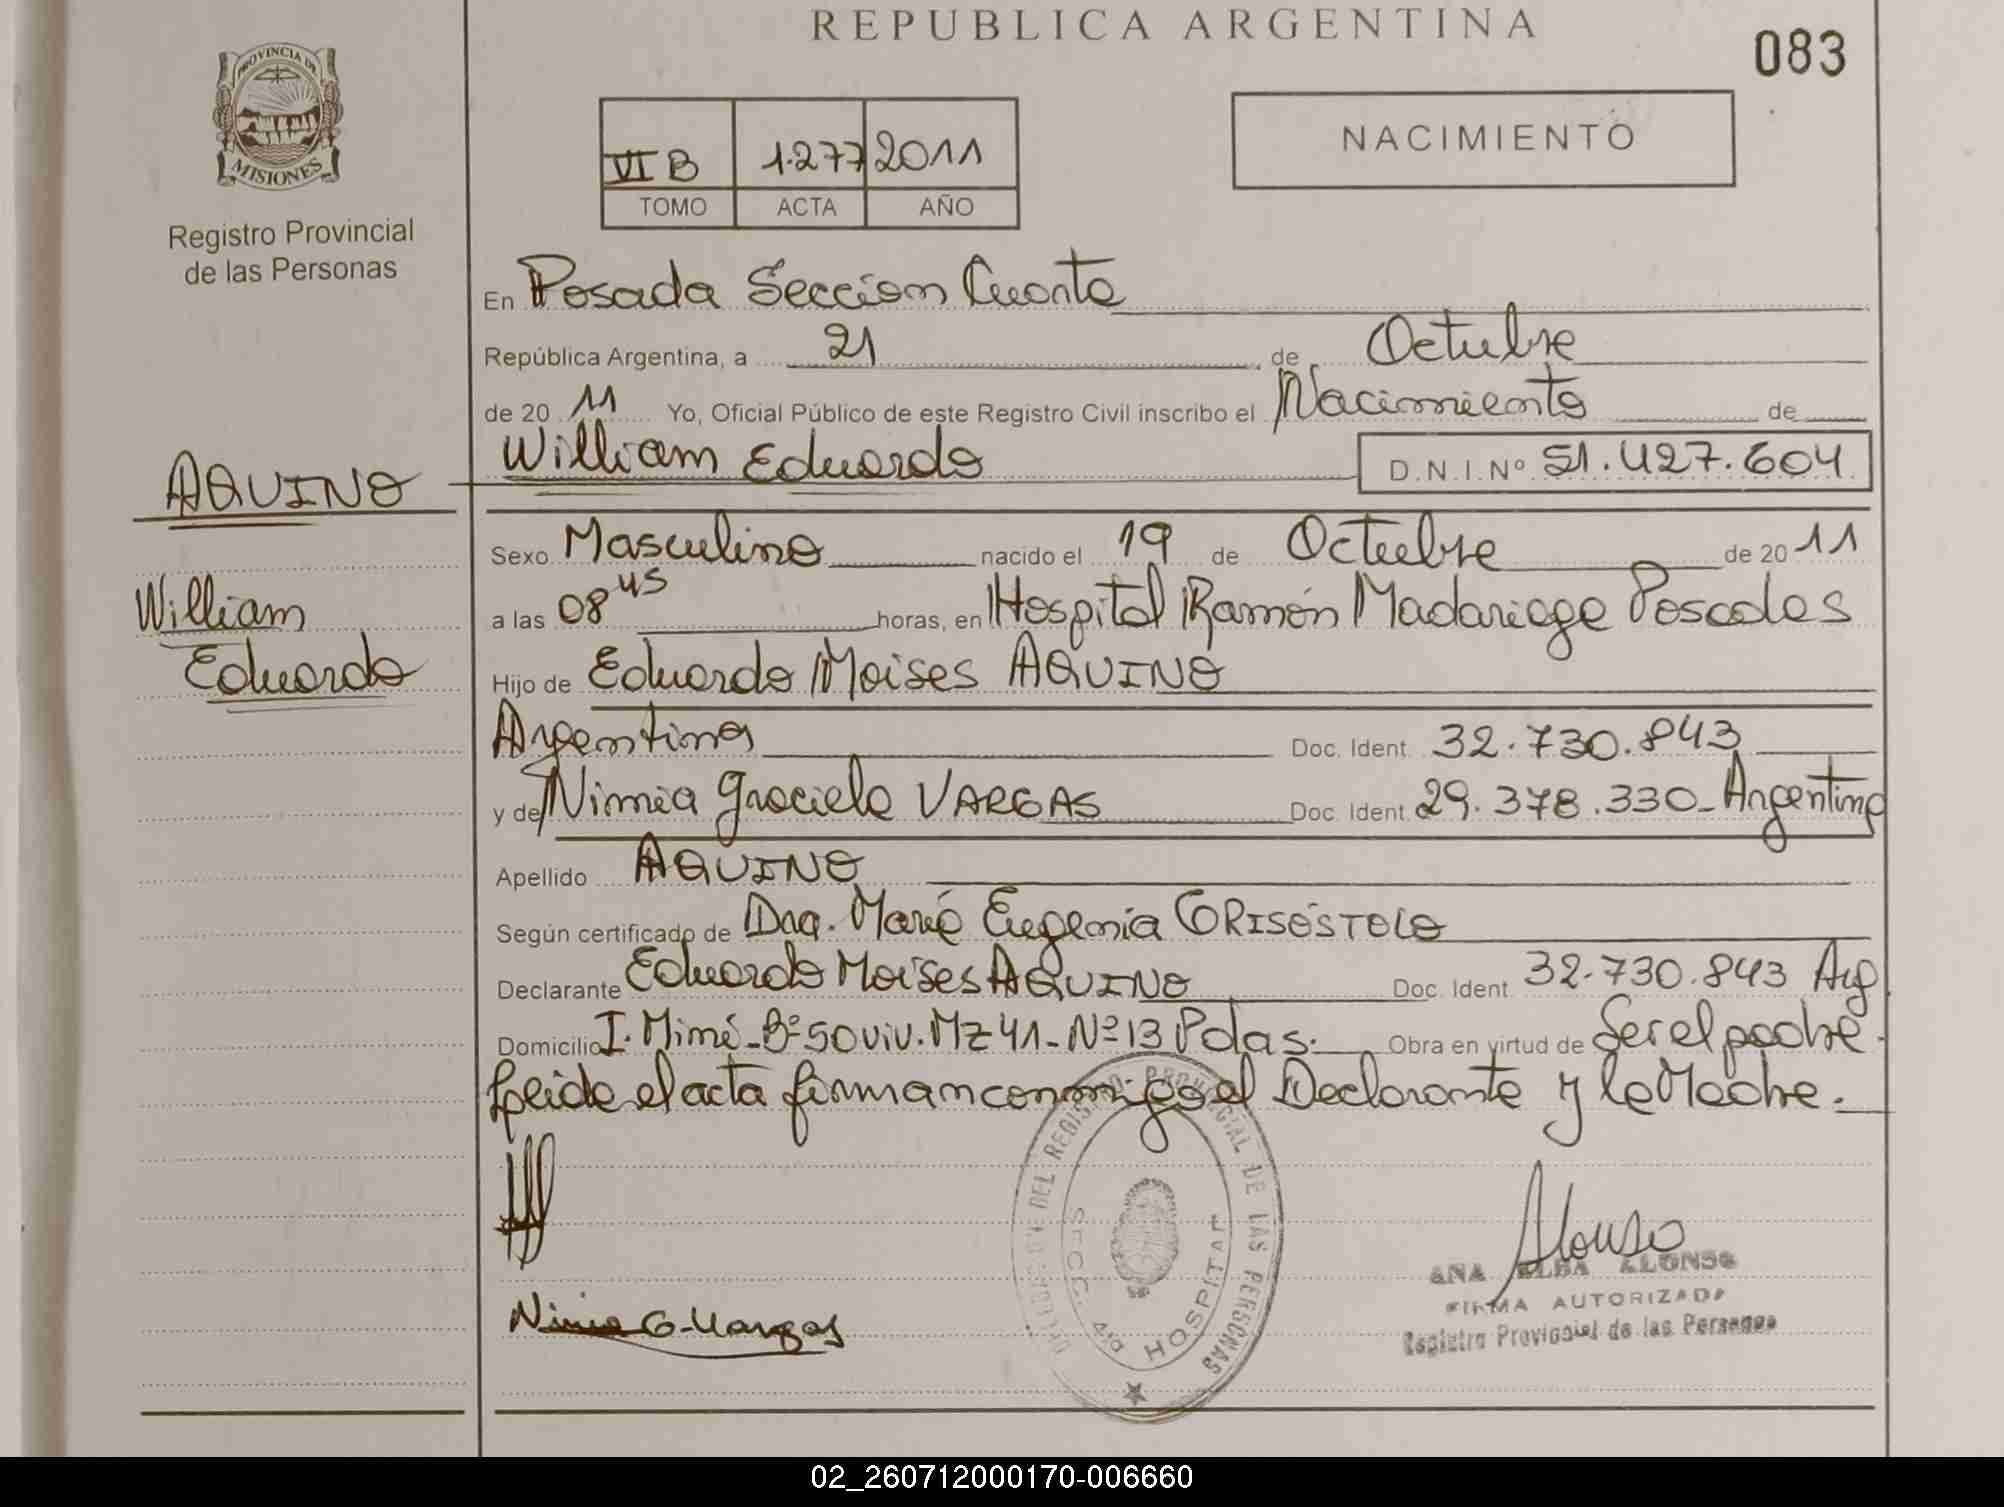 REPUBLICA ARGENTINA
083
PROVINCIA DE
MISIONES
Registro Provincial
de las Personas
VI B 1.277 2011
TOMO ACTA AÑO
NACIMIENTO
En Posada Seccion Cuarta
República Argentina, a 21 de Octubre
de 20 11 Yo, Oficial Público de este Registro Civil inscribo el Nacimiento de
AQUINO William Eduardo D.N.I.Nº 51.427.604
William
Eduardo
Sexo Masculino nacido el 19 de Octubre de 20 11
a las 08 45 horas, en Hospital Ramón Madariaga Posadas
Hijo de Eduardo Moises AQUINO
Argentino Doc. Ident. 32.730.843
y de Nimia Graciela VARGAS Doc. Ident. 29.378.330 - Argentina
Apellido AQUINO
Según certificado de Dra. María Eugenia
Declarante Eduardo Moises AQUINO Doc. Ident. 32.730.843 Arg
Domicilio Bº 50 viv. Mz 41 - Nº 13 Pdas. Obra en virtud de Ser el padre.
Leida el acta firman conmigo el Declarante y la Madre.
Nimia G. Vargas
DEL REGISTRO PROVINCIAL DE LAS PERSONAS
SECC. 4ta HOSPITAL
Alonso
ANA ELBA ALONSO
FIRMA AUTORIZADA
Registro Provincial de las Personas
02_260712000170-006660